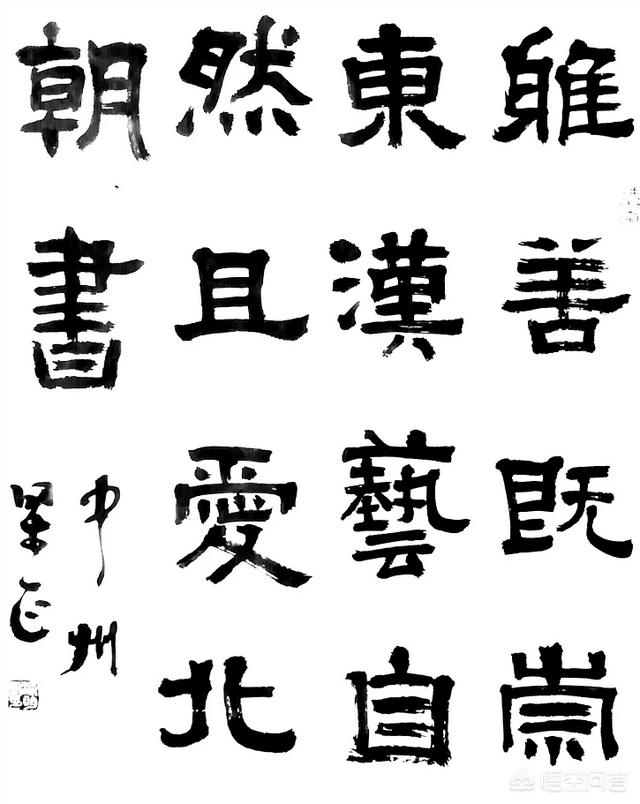 雅善既崇
東漢藝自
然且愛北
朝書
中州
悟空问答